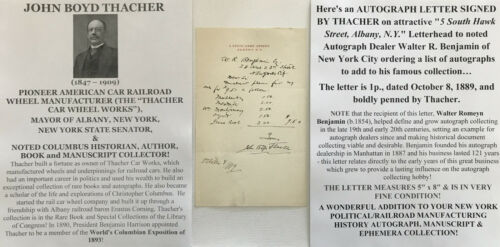 JOHN BOYD THACHER
(1847 – 1909)
PIONEER AMERICAN CAR RAILROAD
WHEEL MANUFACTURER (THE "THACHER
CAR WHEEL WORKS"),
MAYOR OF ALBANY, NEW YORK,
NEW YORK STATE SENATOR,
&
NOTED COLUMBUS HISTORIAN, AUTHOR,
BOOK and MANUSCRIPT COLLECTOR!
Thacher built a fortune as owner of Thacher Car Works, which
manufactured wheels and underpinnings for railroad cars. He also
had an important career in politics and used his wealth to build an
exceptional collection of rare books and autographs. He also became
a scholar of the life and explorations of Christopher Columbus. He
started the rail car wheel company and built it up through a
friendship with Albany railroad baron Erastus Corning. Thacher's
collection is in the Rare Book and Special Collections of the Library
of Congress! In 1890, President Benjamin Harrison appointed
Thacher to be a member of the World's Columbian Exposition of
1893!
5 SOUTH HAWK STREET
ALBANY, N.Y.
W. R. Benjamin Esq
John Boyd Thacher
Here's an AUTOGRAPH LETTER SIGNED
BY THACHER on attractive "5 South Hawk
Street, Albany, N.Y." Letterhead to noted
Autograph Dealer Walter R. Benjamin of
New York City ordering a list of autographs
to add to his famous collection…
The letter is 1p., dated October 8, 1889, and
boldly penned by Thacher.
NOTE that the recipient of this letter, Walter Romeyn
Benjamin (b.1854), helped define and grow autograph collecting
in the late 19th and early 20th centuries, setting an example for
autograph dealers since and making historical document
collecting viable and desirable. Benjamin founded his autograph
dealership in Manhattan in 1887 and his business lasted 121 years
- this letter relates directly to the early years of this great business
which grew to have a lasting influence on the autograph
collecting hobby!
THE LETTER MEASURES 5" x 8" & IS IN VERY
FINE CONDITION!
A WONDERFUL ADDITION TO YOUR NEW YORK
POLITICAL/RAILROAD MANUFACTURING
HISTORY AUTOGRAPH, MANUSCRIPT &
EPHEMERA COLLECTION!